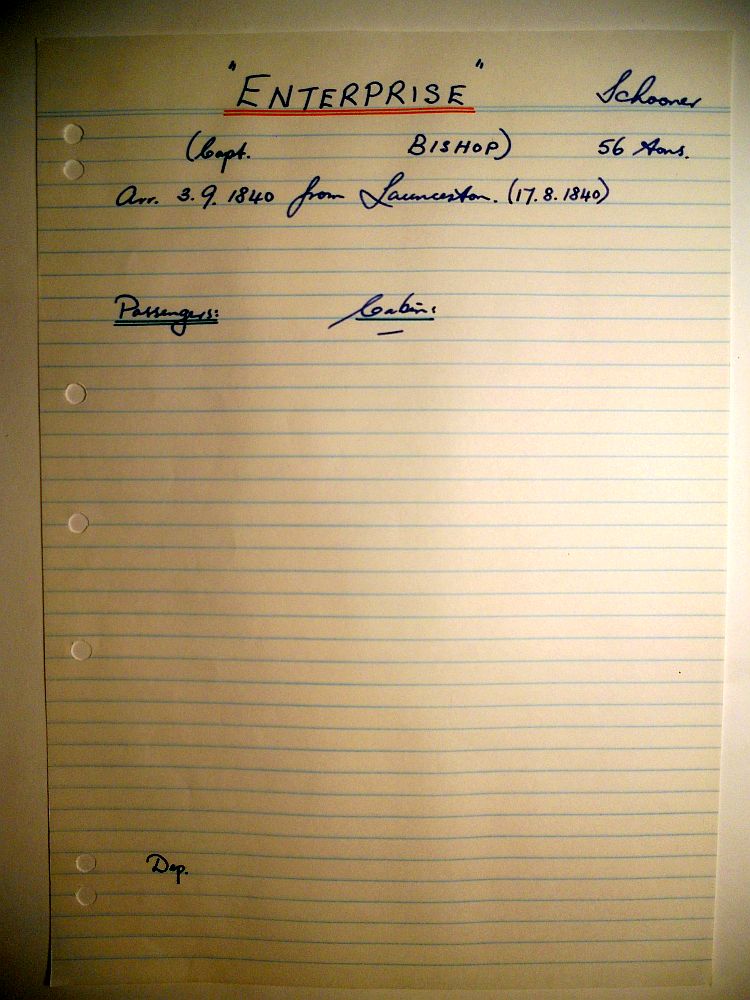 "ENTERPRISE" Schooner
(Capt. BISHOP) 56 tons.
Arr. 3.9.1840 from Launceston. (17.8.1840)
Passengers: Cabin:
—
Dep.